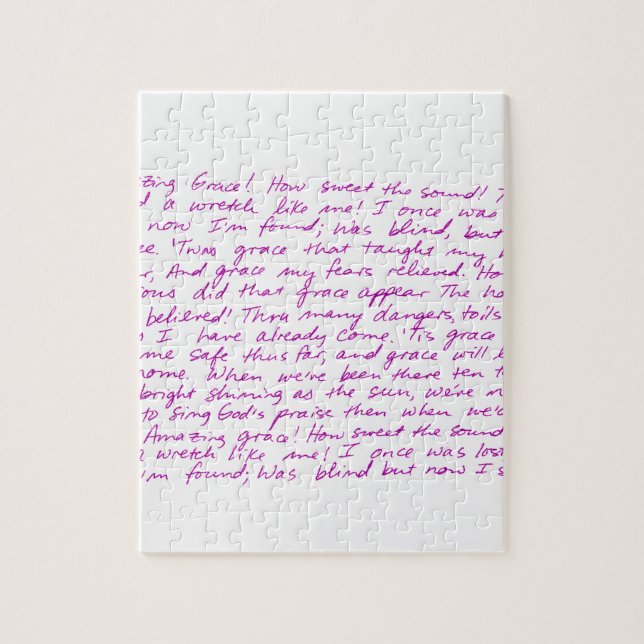 zing Grace! How sweet the sound! T
d a wretch like me! I once was
now I'm found; Was blind, but
ee. 'Twas grace that taught my h
r, And grace my fears relieved. Ho
ious did that grace appear The ho
believed! Thru many dangers, toils
I have already come. 'Tis grace
me safe thus far, and grace will l
home. When we've been there ten t
bright shining as the sun, we've n
to sing God's praise then when we'd
Amazing grace! How sweet the sound
a wretch like me! I once was los
I'm found; Was blind but now I s